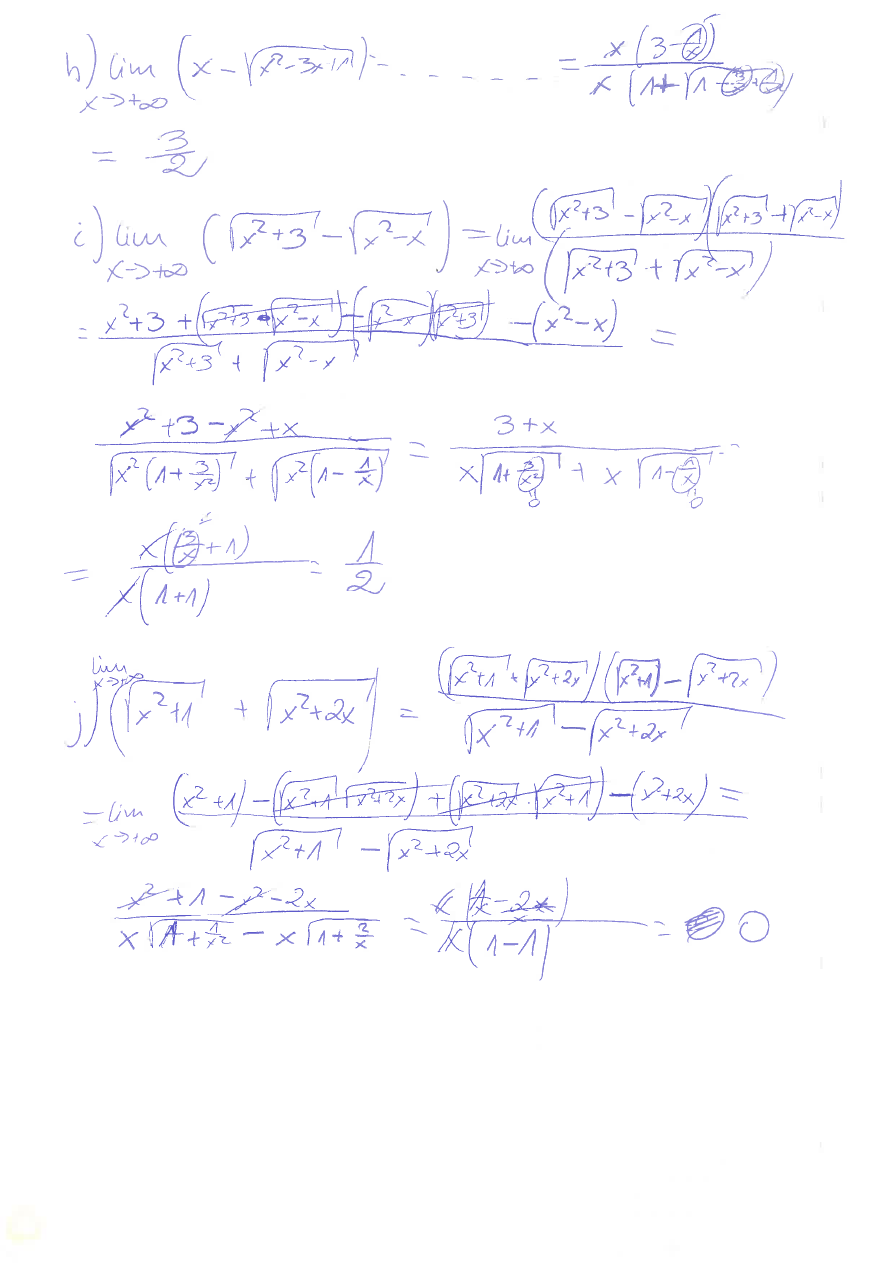 h) lim x→+∞ (x − √(x²−3x+1)) = . . . . . . = x(3 − 1/x) / x(1 + √(1 − 3/x + 1/x²))
= 3/2
i) lim x→+∞ (√(x²+3) − √(x²−x)) = lim x→+∞ (√(x²+3) − √(x²−x))(√(x²+3) + √(x²−x)) / (√(x²+3) + √(x²−x))
= x²+3 + (√(x²+3) · √(x²−x)) − (√(x²−x))(√(x²+3)) − (x²−x) / √(x²+3) + √(x²−x) =
x²+3−x²+x / √(x²(1+3/x²)) + √(x²(1−1/x)) = 3+x / x√(1+3/x²) + x√(1−1/x) =
= x(3/x+1) / x(1+1) = 1/2
j) lim x→+∞ (√(x²+1) + √(x²+2x)) = (√(x²+1) + √(x²+2x))(√(x²+1) − √(x²+2x)) / √(x²+1) − √(x²+2x)
= lim x→+∞ (x²+1) − (√(x²+1) √(x²+2x)) + (√(x²+2x) · √(x²+1)) − (x²+2x) / √(x²+1) − √(x²+2x) =
x²+1−x²−2x / x√(1+1/x²) − x√(1+2/x) = x(1/x − 2x/x) / x(1−1) = 0